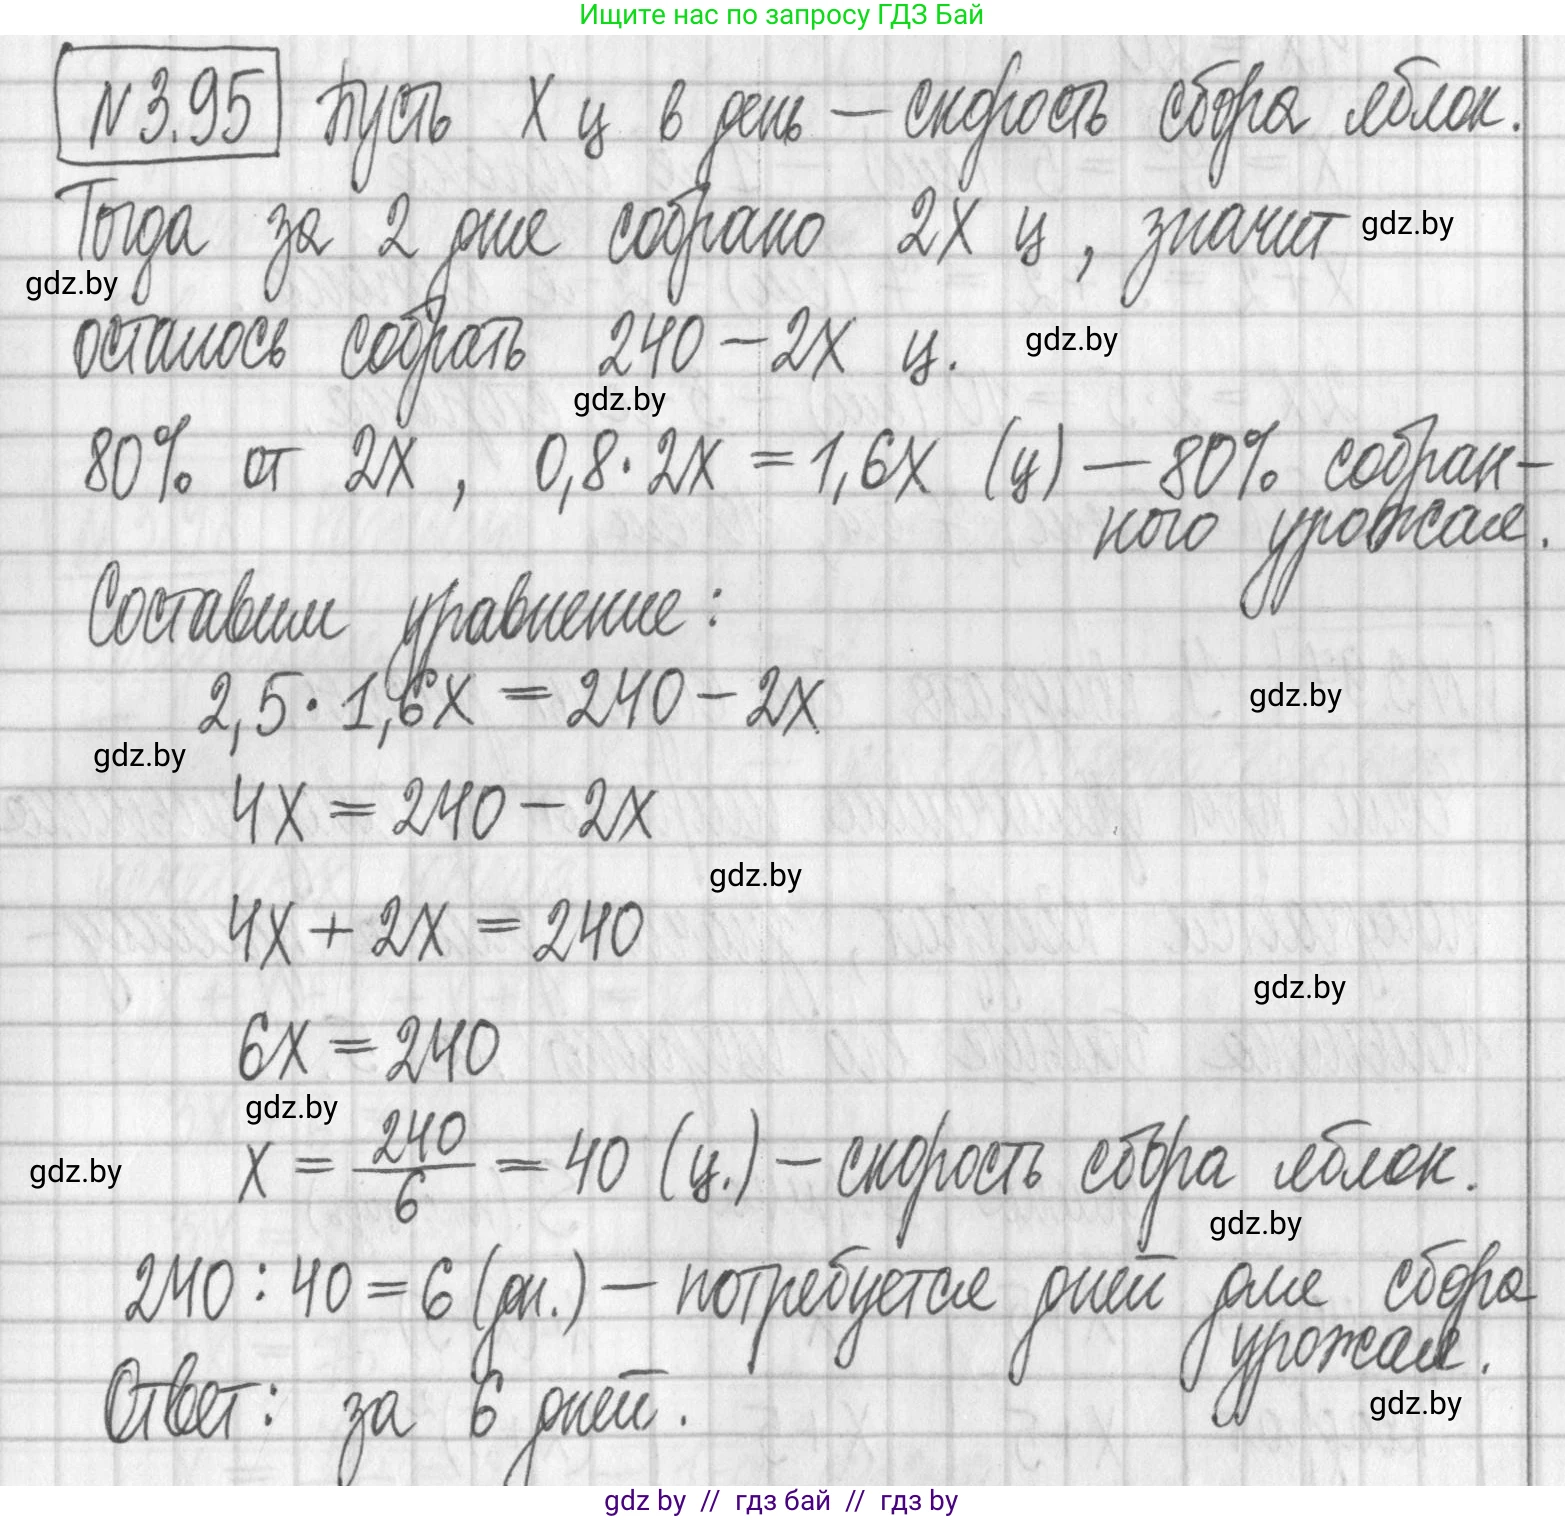 Ищите нас по запросу ГДЗ Бай
N 3.95 Пусть x ц в день – скорость сбора яблок.
Тогда за 2 дня собрано 2x ц, значит gdz.by
gdz.by
осталось собрать 240 – 2x ц. gdz.by
gdz.by
80% от 2x, 0,8·2x = 1,6x (ц) – 80% собран-
ного урожая.
Составим уравнение:
2,5·1,6x = 240 – 2x gdz.by
gdz.by
4x = 240 – 2x
gdz.by
4x + 2x = 240
gdz.by
6x = 240
gdz.by
gdz.by x = 240/6 = 40 (ц.) – скорость сбора яблок.
gdz.by
240 : 40 = 6 (дн.) – потребуется дней для сбора
урожая.
gdz.by
Ответ: за 6 дней.
gdz by // гдз бай // гдз by